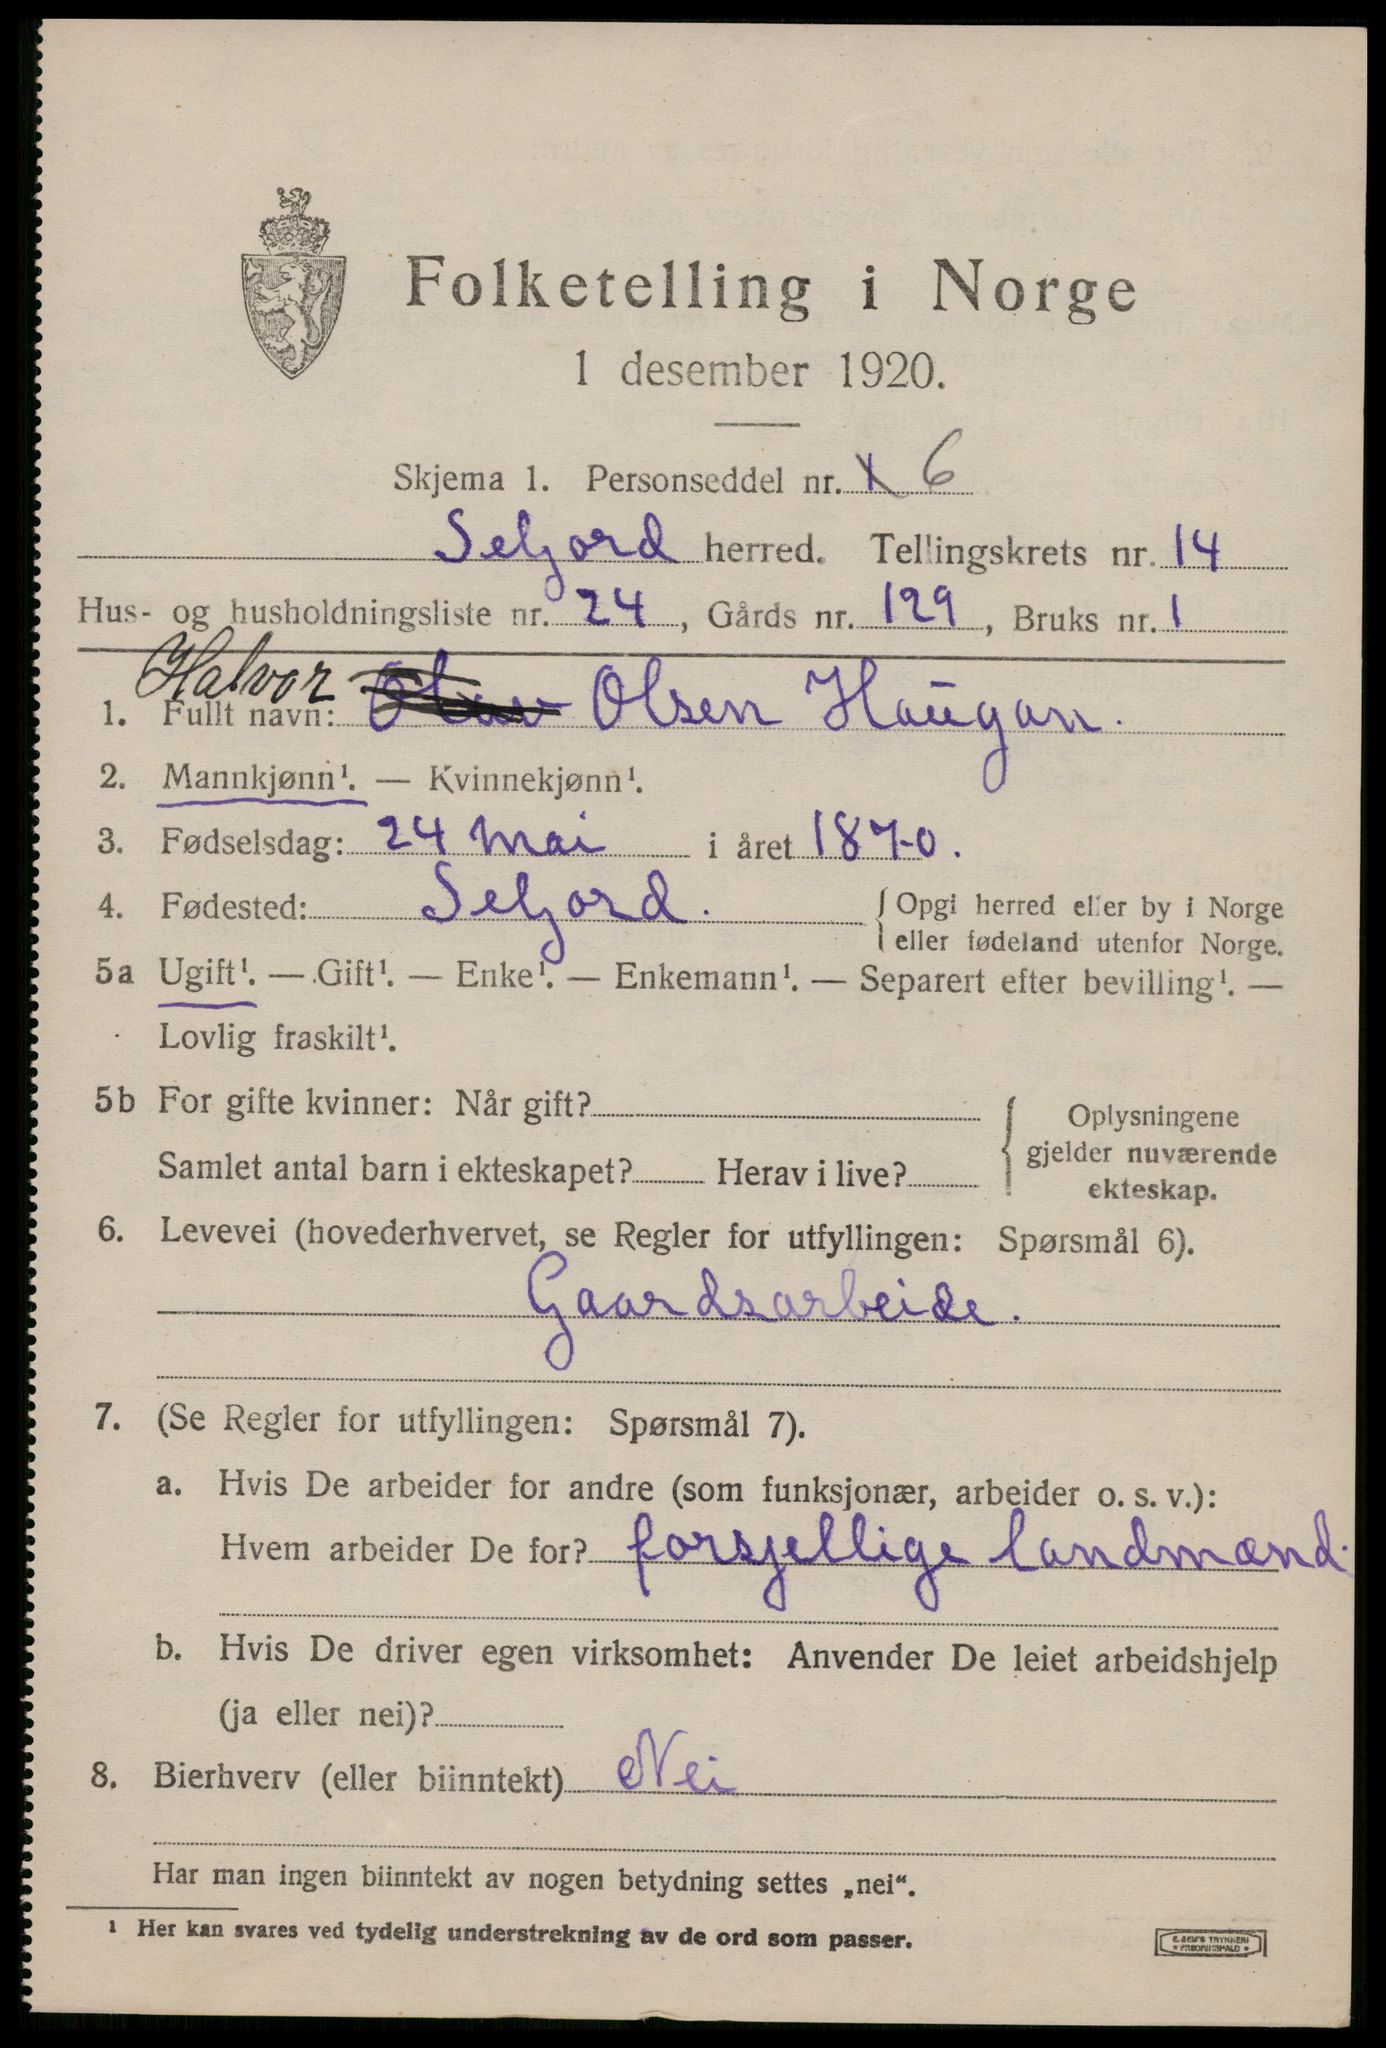 Folketelling i Norge
1 desember 1920.
Skjema 1. Personseddel nr. 6
Seljord herred. Tellingskrets nr. 14
Hus- og husholdningsliste nr. 24, Gårds nr. 129, Bruks nr. 1
Halvor
1. Fullt navn: Olav Olsen Haugan.
2. Mannkjønn¹. — Kvinnekjønn¹.
3. Fødselsdag: 24 mai i året 1870.
4. Fødested: Seljord. {Opgi herred eller by i Norge
eller fødeland utenfor Norge.
5a Ugift¹. — Gift¹. — Enke¹. — Enkemann¹. — Separert efter bevilling¹. —
Lovlig fraskilt¹.
5b For gifte kvinner: Når gift?
Samlet antal barn i ekteskapet? Herav i live?
{Oplysningene
gjelder nuværende
ekteskap.
6. Levevei (hovederhvervet, se Regler for utfyllingen: Spørsmål 6).
Gaardsarbeide.
7. (Se Regler for utfyllingen: Spørsmål 7).
a. Hvis De arbeider for andre (som funksjonær, arbeider o. s. v.):
Hvem arbeider De for? forsjellige landmænd.
b. Hvis De driver egen virksomhet: Anvender De leiet arbeidshjelp
(ja eller nei)?
8. Bierhverv (eller biinntekt) Nei
Har man ingen biinntekt av nogen betydning settes „nei“.
¹ Her kan svares ved tydelig understrekning av de ord som passer.